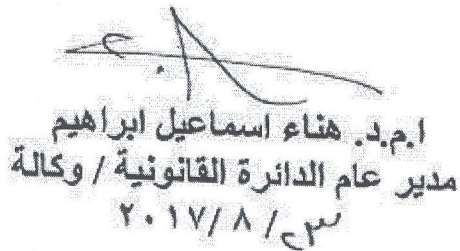 ا.م.د. هناء اسماعيل ابراهيم
مدير عام الدائرة القانونية / وكالة
/ ٨ /٢٠١٧